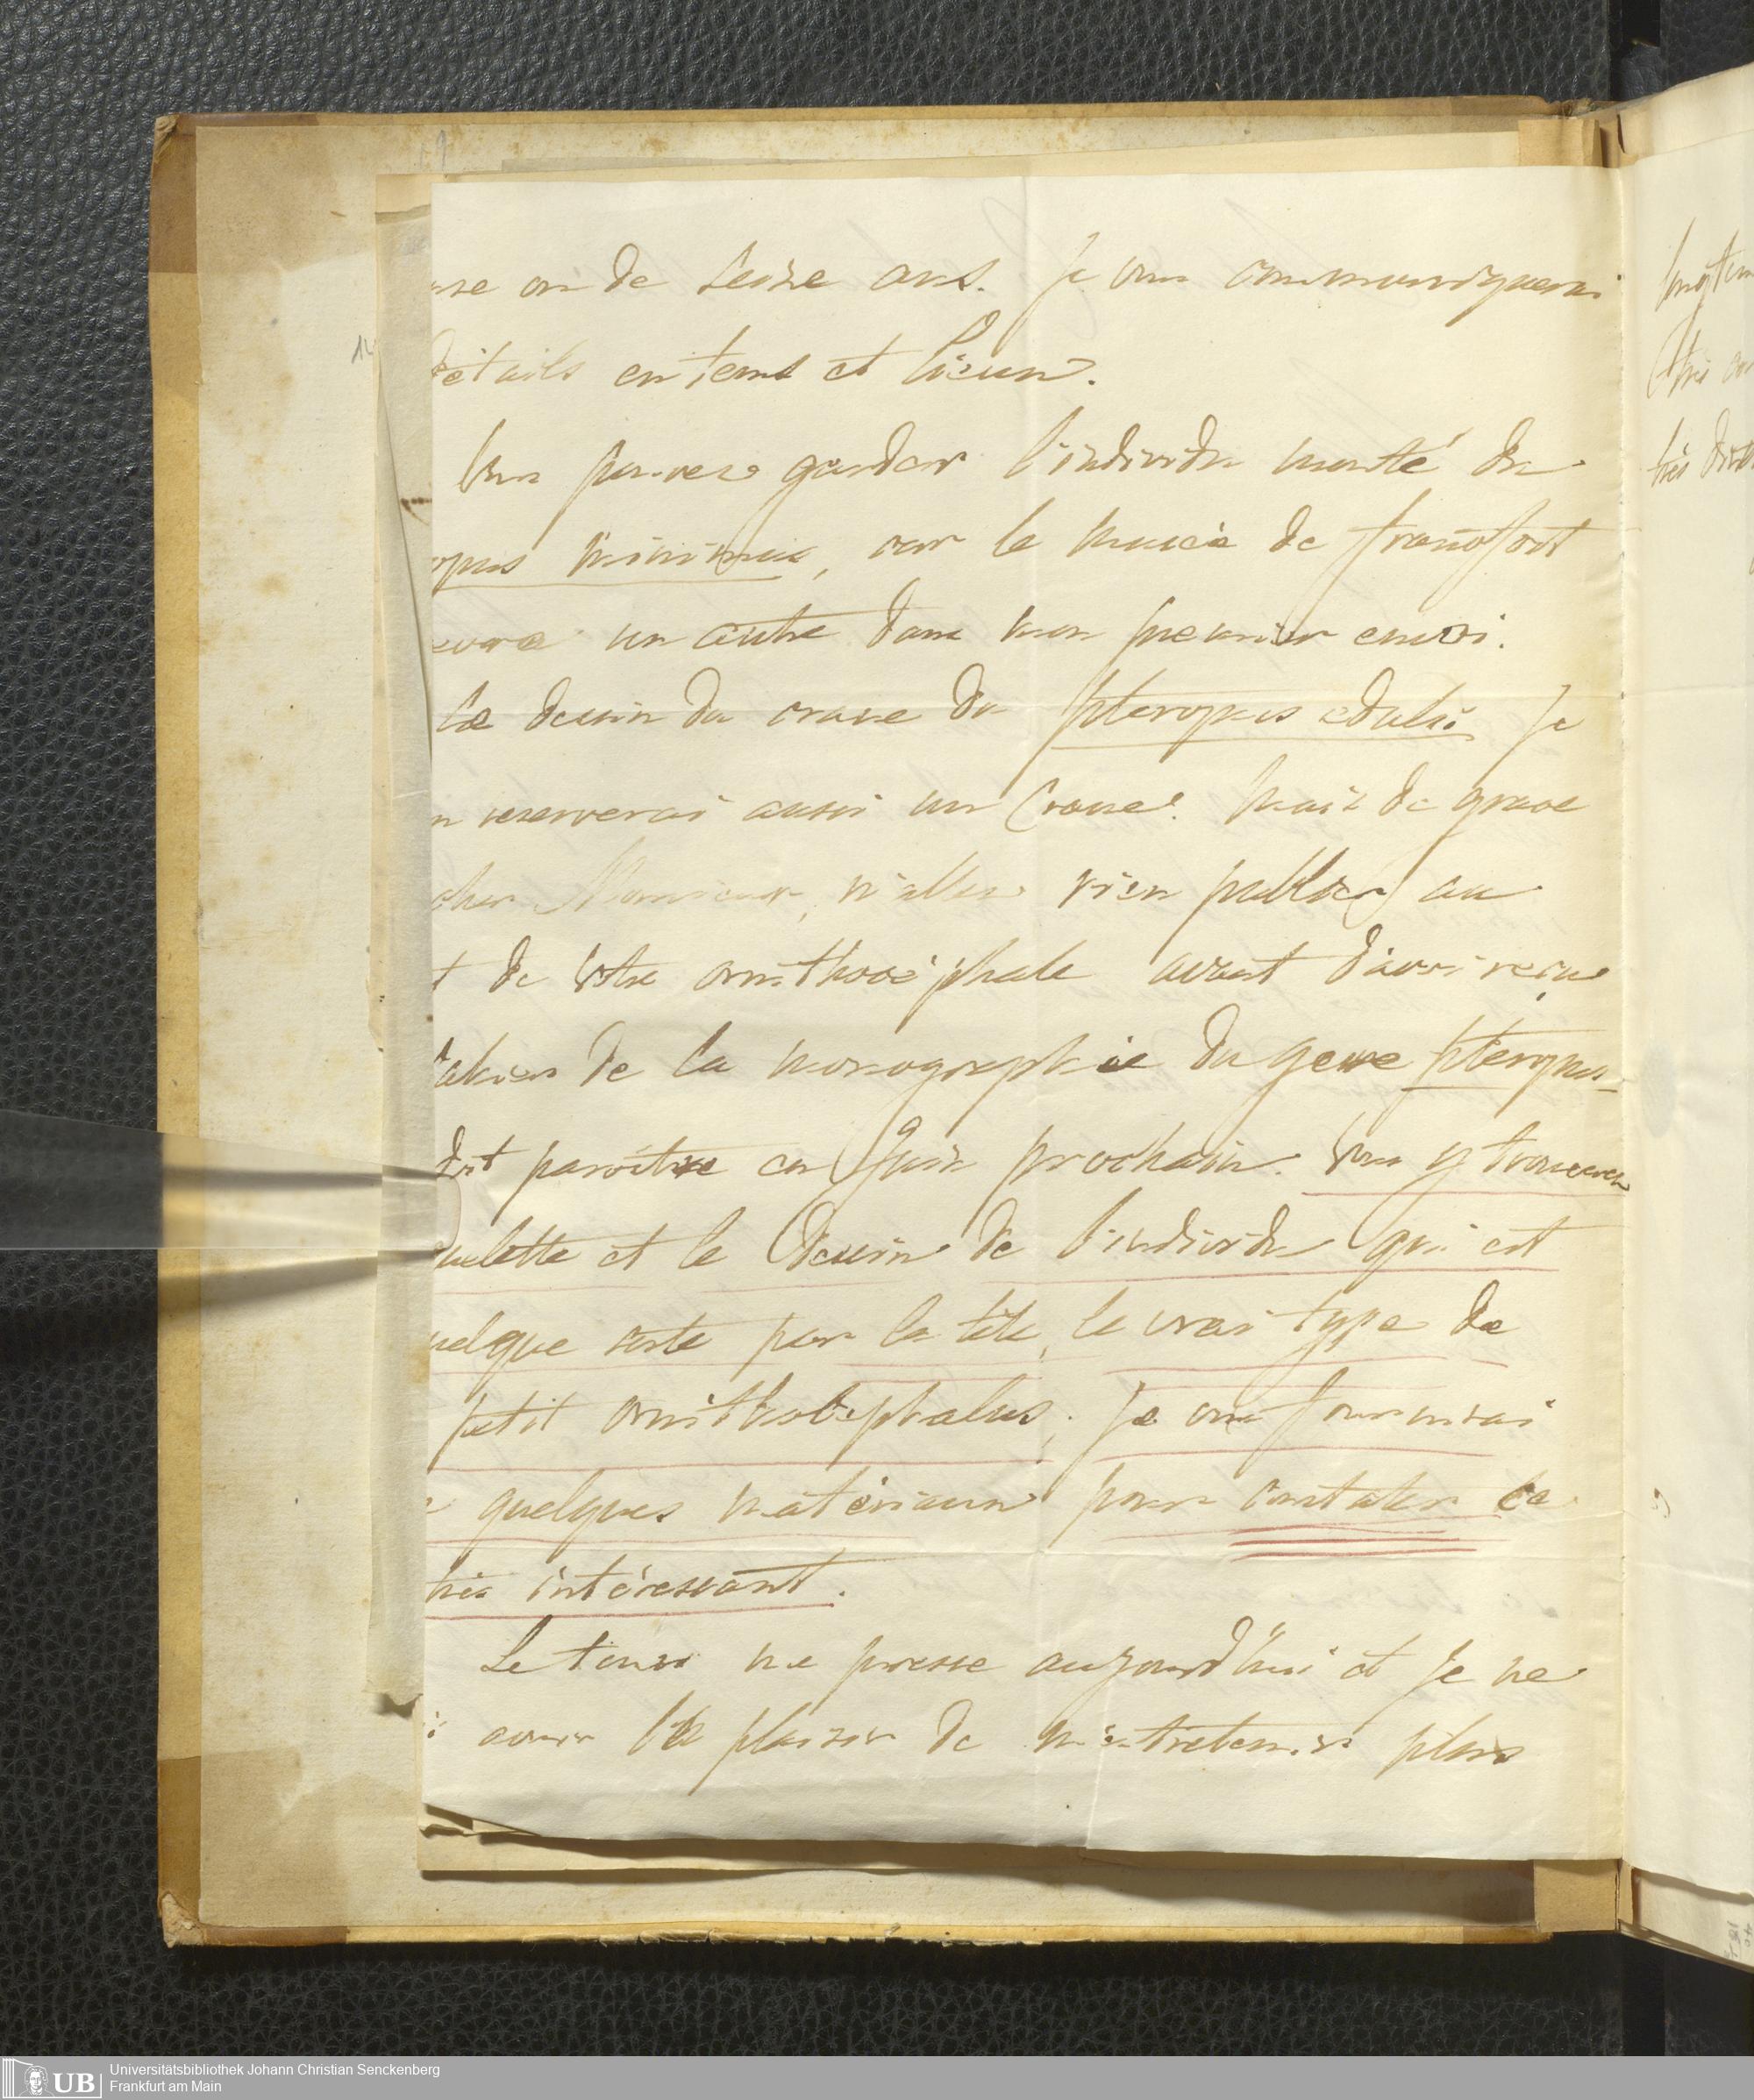 ou de seize ans. Je vous communiquerai
details en tems et lieux.
Vous pouvez garder l'individu monté du
opus minimus, car le musée de francfort
un autre dans mon premier envoi.
Le dessin du crane du pteropus edulis Je
reserverai aussi un Crane. Mais de grace
cher Monsieur, n'allez rien publier au
t de votre ornithocéphale avant d'avoir reçu
cahier de la monographie du genre pteropus
doit paroître en Juin prochain. Vous y trouverez
uelette et le dessin de l'individu qui est
uelque sorte par la tête, le vrai type de
petit ornithocephalus. Je vous fournirai
quelques matériaux pour constater ce
très intéressant.
Le tems me presse aujourd'hui et je ne
avoir le plaisir de m'entretenir plus
longtem
très
9
Universitätsbibliothek Johann Christian Senckenberg
Frankfurt am Main
UB